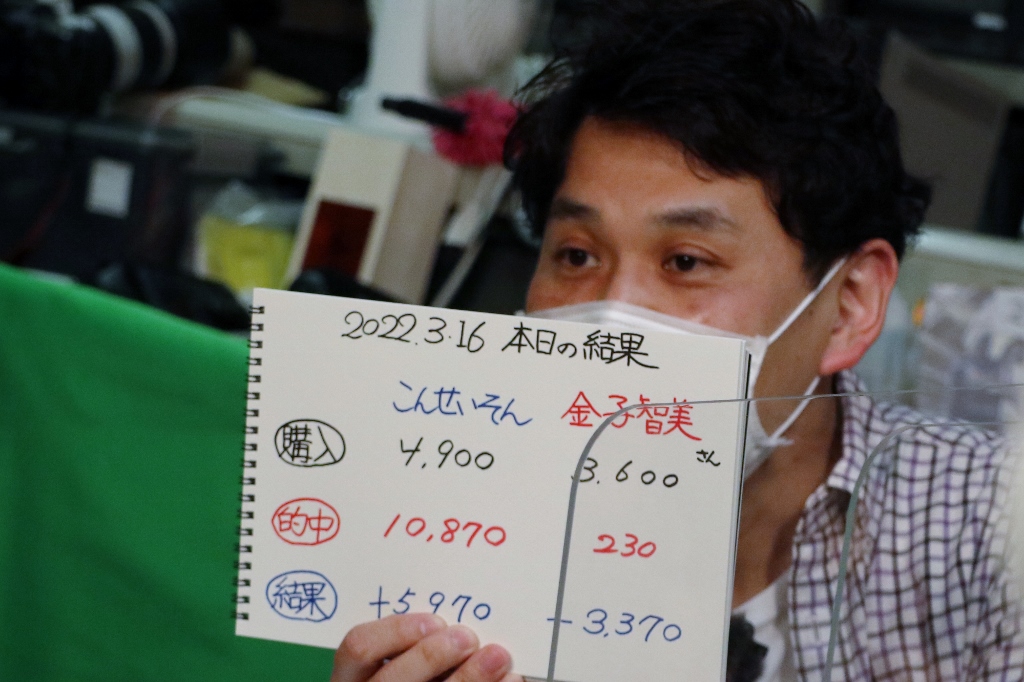 2022.3.16 本日の結果
こんせいそん 金子智美さん
購入 4,900 3,600
的中 10,870 230
結果 +5,970 -3,370